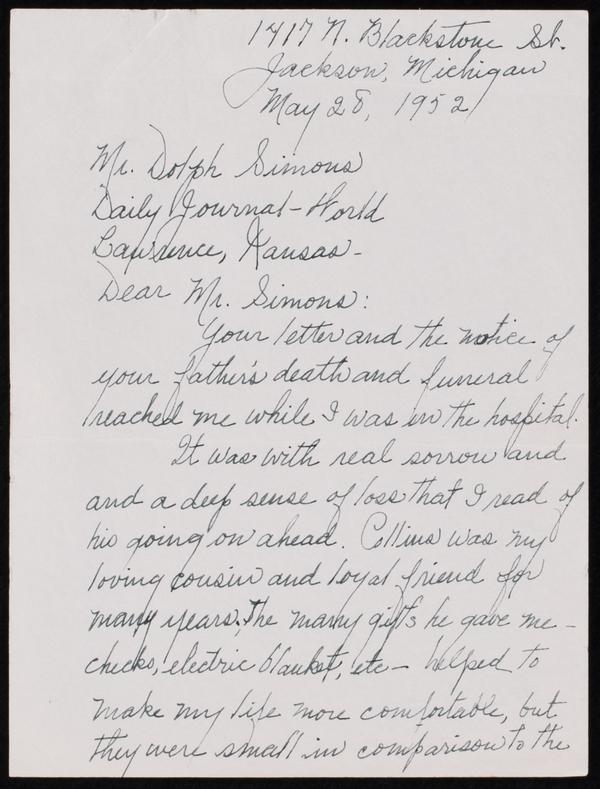 1417 N. Blackstone St.
Jackson, Michigan
May 28, 1952
Mr. Dolph Simons
Daily Journal-World
Lawrence, Kansas-
Dear Mr. Simons:
Your letter and the notice of
your father's death and funeral
reached me while I was in the hospital.
It was with real sorrow and
and a deep sense of loss that I read of
his going on ahead. Collins was my
loving cousin and loyal friend for
many years. The many gifts he gave me -
checks, electric blanket, etc - helped to
make my life more comfortable, but
they were small in comparison to the